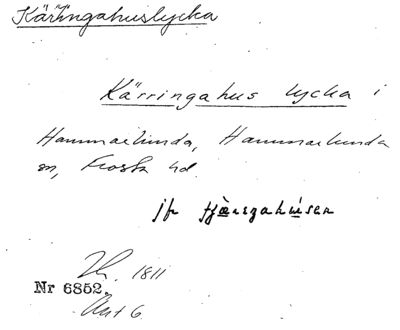 Käringahuslycka
Kärringahus lycka i
Hammarlunda, Hammarlunda
sn, Frosta hd.
jfr tjärsgahúsen
1811
Nr 6852.
Akt 6